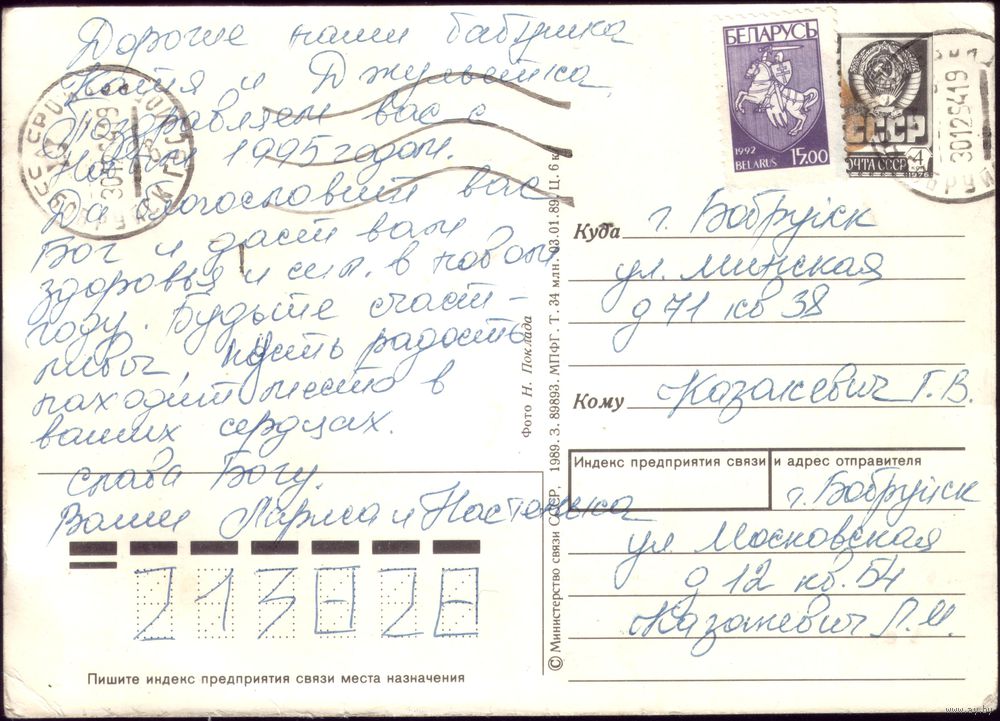 Дорогие наши бабушка
Катя и Джульетка
Поздравляем вас с
Новым 1995 годом.
Да благословит вас
Бог и даст вам
здоровья и сил. в новом
году. Будьте счаст-
ливы, пусть радость
находит место в
ваших сердцах.
Слава Богу.
Ваши Лариса и Настенька
213828
Пишите индекс предприятия связи места назначения
Фото Н. Поклада
© Министерство связи СССР, 1989. З. 89893. МПФГ. Т. 34 млн. 03.01.89. Ц. 6 к.
БЕЛАРУСЬ
1992
BELARUS 15.00
СССР
ПОЧТА СССР 4
1976
30129419
Куда г. Бобруйск
ул. Минская
д 71 кв 38
Кому Казакевич Г.В.
Индекс предприятия связи и адрес отправителя
г. Бобруйск
ул Московская
д 12 кв. 54
Казакевич Л.М.
www.ay.by